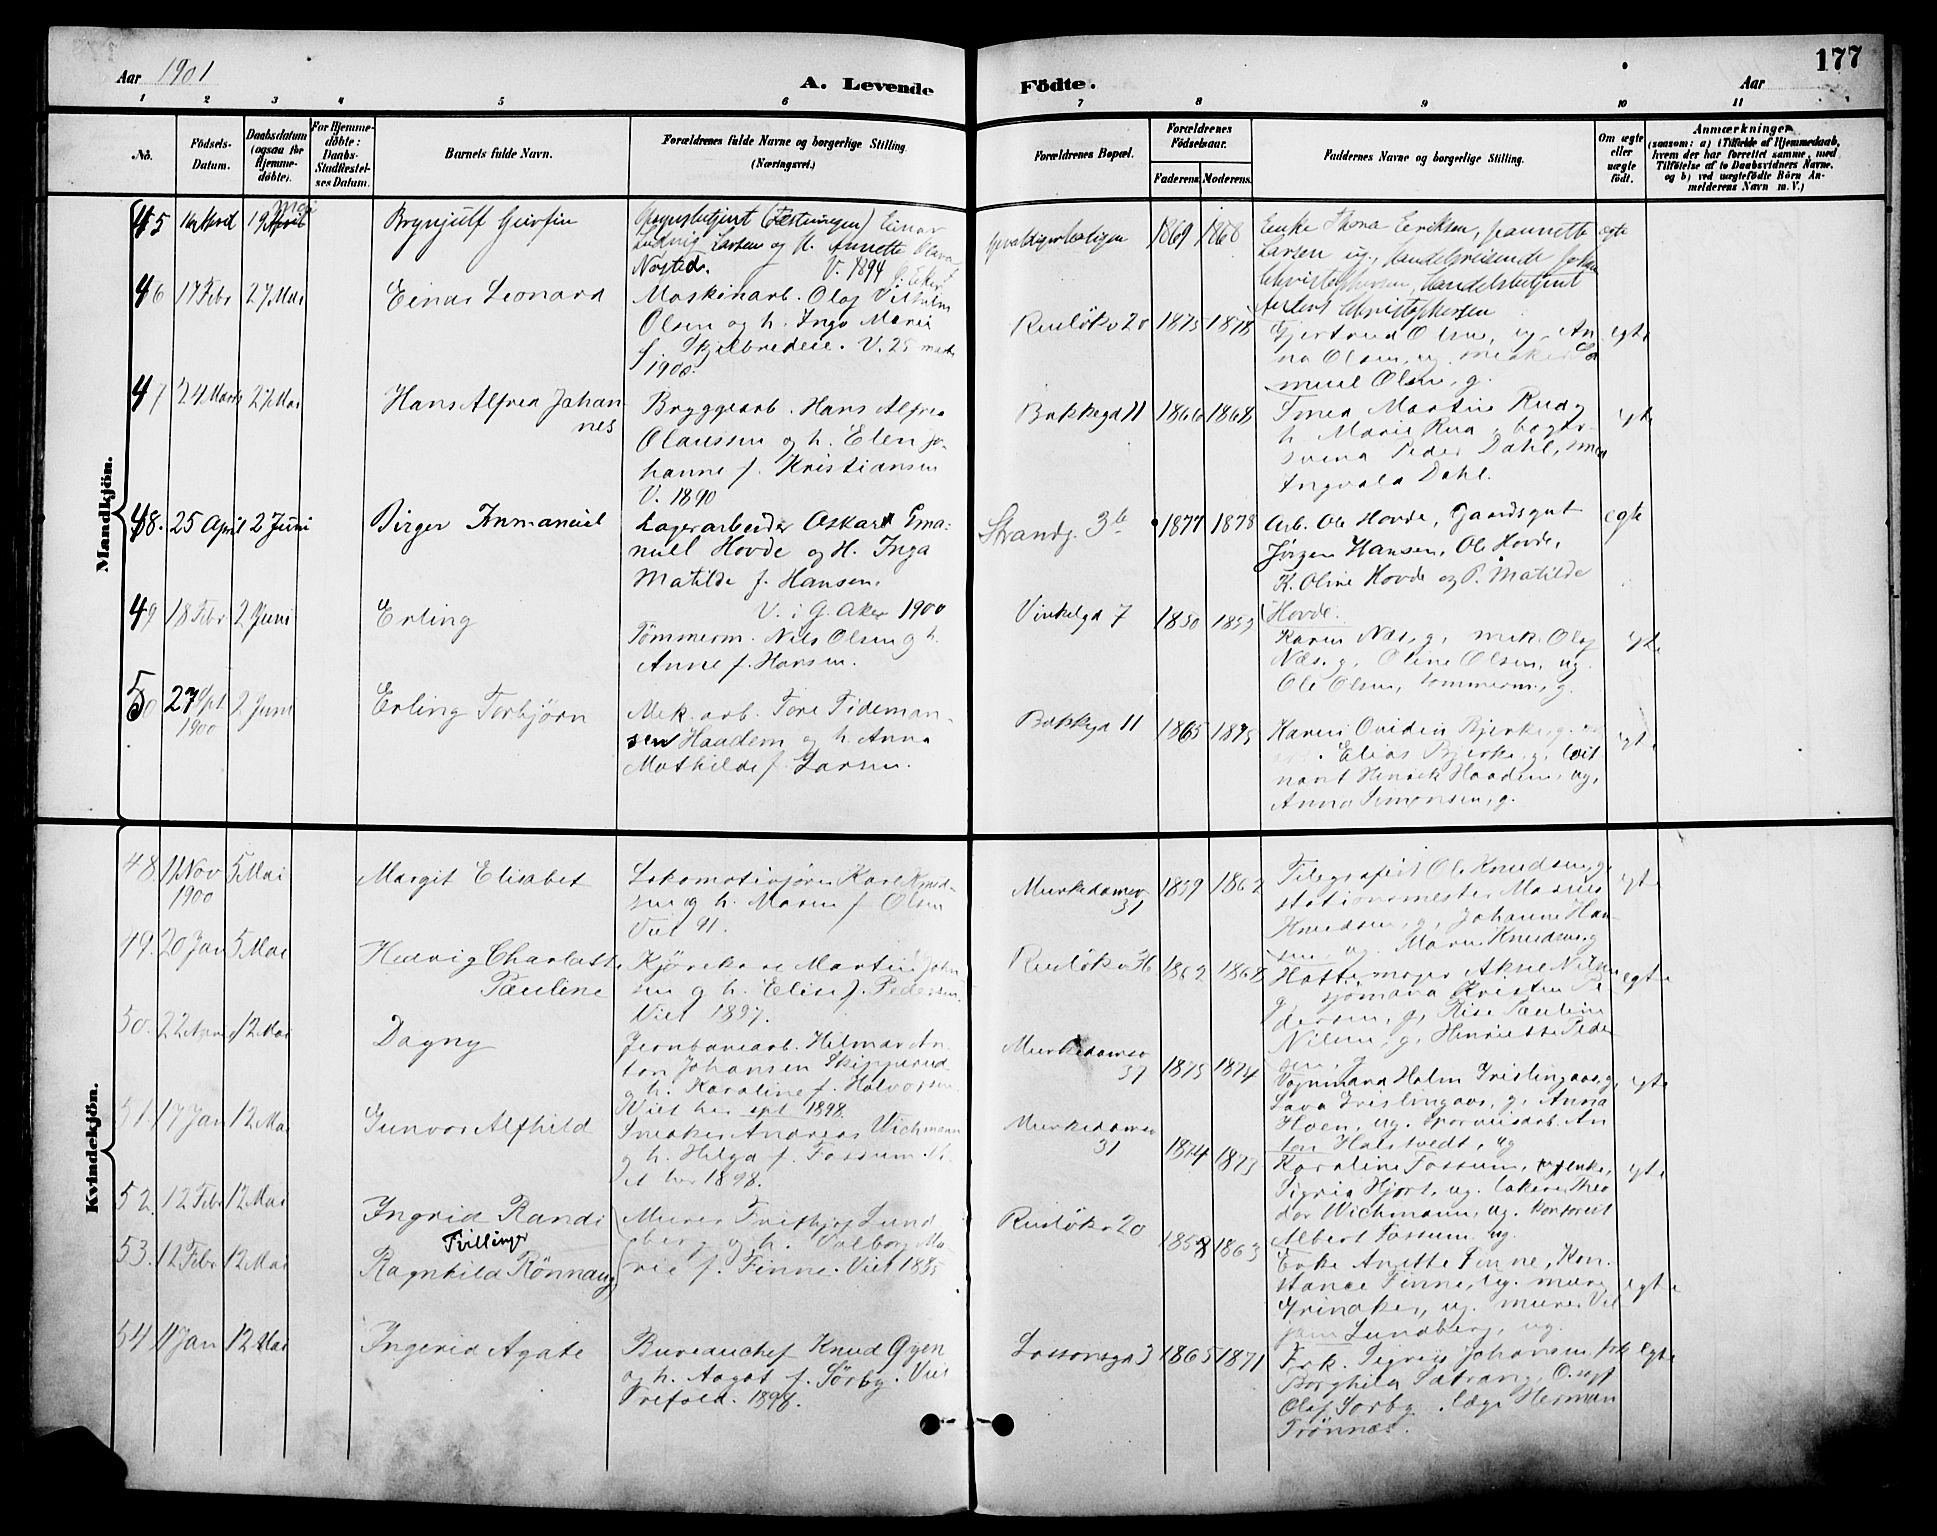 Aar 1901
A. Levende
Födte.
Aar
177
1 2 3 4 5 6 7 8 9 10 11
No.
Födsels-
Datum.
Daabsdatum
(ogsaa for
Hjemme-
döbte).
For Hjemme-
döbte:
Daabs-
Stadfæstel-
ses Datum.
Barnets fulde Navn.
Forældrenes fulde Navne og borgerlige Stilling.
(Næringsvei.)
Forældrenes Bopæl.
Forældrenes
Födselsaar.
Faderens.
Moderens.
Faddernes Navne og borgerlige Stilling.
Om ægte
eller
uægte
födt.
Anmærkninger
(saasom: a) i Tilfælde af Hjemmedaab,
hvem der har forrettet samme, med
Tilföielse af to Daabsvidners Navne,
og b) ved uægtefödte Börn An-
melderens Navn m. V.)
Mandkjön.
45 19 Mai Brynjulf
(Fæstningen) Einar
Ludvig Larsen og H. Annette Olava
Nøsted. V. 1894
1869 1868
Enke Thona Eriksen, Jannette
Larsen ug, Handelsreisende
Christophersen, Handelsbetjent
Christophersen
egte
46 17 Febr 27 Mai Einar Leonard
Maskinarb. Olaf Vilhelm
Olsen og h. Inga Marie
f. Skjelbredeie. V. 25 marts
1900.
Rusløkv 20 1875 1878
Gjertrud Olsen, ug, An
na Olsen, ug. snekker Sa
muel Olsen, g.
egte
47 24 Marts 27 Mai Hans Alfred Johan
nes
Bryggearb. Hans Alfred
Olaussen og h. Elen Jo-
hanne f. Kristiansen
V. 1890
Bakkegd 11 1866 1868
Smed Martin Rud og
h. Marie Rud, bager-
svend Peder Dahl, smed
Ingvald Dahl.
egte
48. 25 April 2 Juni Birger Immanuel
Lagerarbeider Oskar Ema-
nuel Hovde og H. Inga
Matilde f. Hansen.
V. i G. Aker 1900
Strandg. 3b 1877 1878
Arb. Ole Hovde, Gaardsgut
Jørgen Hansen, Ole Hovde,
K. Oline Hovde og P. Matilde
Hovde.
egte
49 18 Febr 2 Juni Erling
Tömmerm. Nils Olsen og h.
Anne f. Hansen.
Vinkelgd 7 1850 1859
Karen Næs, g, mek. Olaf
Næs, g, Oline Olsen, ug.
Ole Olsen, tømmerm, g.
egte
50 27 Spt
1900 2 Juni Erling Torbjørn
Mek. arb. Tore Tideman-
sen Haadem og h. Anna
Mathilde f. Larsen.
Bakkegd 11 1865 1875
Karen Ovidia Bjerke, g.
Elias Bjerke, g, løit
nant Henrik Haadem, ug,
Anna Simonsen, g.
egte
Kvindekjön.
48. 11 Nov
1900 5 Mai Margit Elisabet
Lokomotivfører Karl Knud-
sen og h. Maren f. Olsen
Viet 91.
Munkedamsv
31 1859 1862
Telegrafist Ole Knudsen, g,
stationsmester Marius
Knudsen, g, Johanne Han-
sen ug. Maren Knudsen, g
egte
49. 20 Jan 5 Mai Hedvig Charlotte
Pauline
Kjørekare Martin John
sen og h. Elise f. Pedersen.
Viet 1897.
Rusløkv 36 1862 1868
Hattemager Aksel Nilsen
g, sjømand Kristen Pe
dersen, g, Rise Pauline
Nilsen, g, Henriette Peder
sen, g
egte
50. 22 12 Mai Dagny
Jernbanearb. Hilmar An-
ton Johansen Skipperud
og h. Karoline f. Halvorsen
Viet her spt 1898.
Munkedamsv
37 1875 1874
Vognmand Holm Frislingaas, g,
Lava Frislingaas, g, Anna
Hoen, ug. sporveisarb. An
ton Halstvedt, ug
egte
51. 17 Jan 12 Mai Gunvor Alfhild
Snekker Andreas Wichmann
og h. Helga f. Fossum. Vi-
et her 1898.
Munkedamsv
31 1874 1873
Karoline Fossum, enke,
Sigrid Hjort, ug. lakerer Theo
dor Wichmann, ug. kontorist
Albert Fossum ug.
egte
52. 12 Febr 12 Mai Ingrid Randi
Tvillinger
53. 12 Febr 12 Mai Ragnhild Rönnaug
Murer Fritjof Lund
berg og h. Valborg Ma-
rie f. Finne. Viet 1885
Rusløkv 20 1858 1863
Enke Anette Finne, Kon
stance Finne, ug. murer
Grinaker, ug. murer Vil
jam Lundberg, ug.
egte
54. 11 Jan 12 Mai Ingerid Agate
Bureauchef Knud Øyen
og h. Aagot f. Sörby. Viet
Trefold. 1898.
Lassonsgd 3 1865 1871
Frk. Sigrid Johansen, frk
Borghild Satrang, O.
Olaf Sorby, læge Herman
Trönnæs.
egte